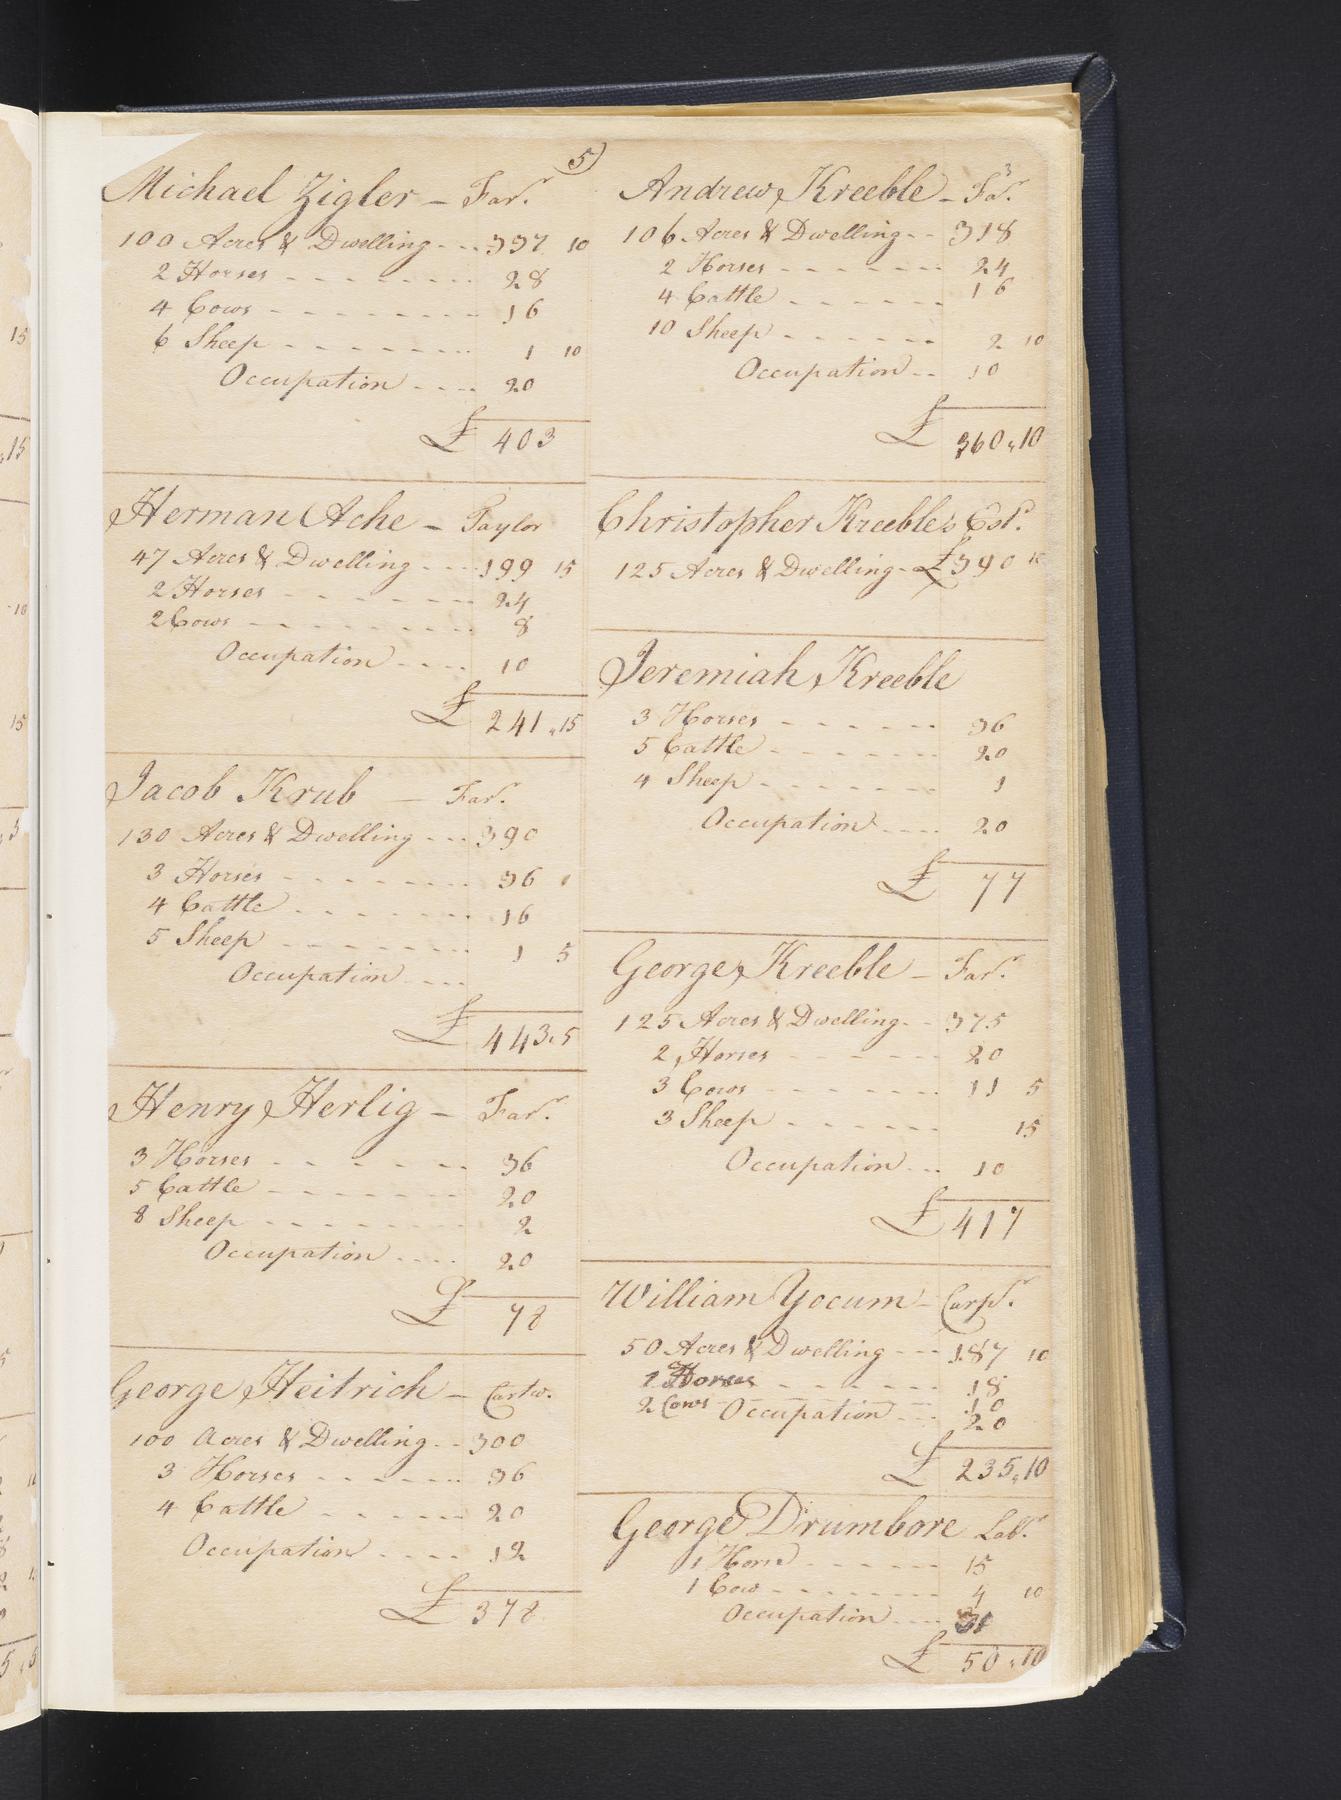 5)
Michael Zigler - Far.r
100 Acres & Dwelling - - - 337 10
2 Horses - - - - - - - - 28
4 Cows - - - - - - - - - 16
6 Sheep - - - - - - - - 1 10
Occupation - - - - 20
£ 403
Herman Ache - Taylor
47 Acres & Dwelling - - - 199 15
2 Horses - - - - - - - - 24
2 Cows - - - - - - - - - 8
Occupation - - - - 10
£ 241 " 15
Jacob Krub — Far.r
130 Acres & Dwelling - - - 390
3 Horses - - - - - - - - 36
4 Cattle - - - - - - - 16
5 Sheep - - - - - - - - 1 5
Occupation - - - -
£ 443 " 5
Henry Herlig - Far.r
3 Horses - - - - - - - 36
5 Cattle - - - - - - - - 20
8 Sheep - - - - - - - - 2
Occupation - - - - 20
£ 78
George Heitrich - Cartw.
100 Acres & Dwelling - - 300
3 Horses - - - - - - - 36
4 Cattle - - - - - - 20
Occupation - - - - 12
£ 378
3
Andrew Kreeble - Fa.r
106 Acres & Dwelling - - 318
2 Horses - - - - - - - 24
4 Cattle - - - - - - - 16
10 Sheep - - - - - - 2 10
Occupation - - 10
£ 360 " 10
Christopher Kreeble's Est.
125 Acres & Dwelling - £390
Jeremiah Kreeble
3 Horses - - - - - - - 36
5 Cattle - - - - - - - 20
4 Sheep - - - - - - - 1
Occupation - - - - 20
£ 77
George Kreeble - Far.r
125 Acres & Dwelling - - 375
2 Horses - - - - - - 20
3 Cows - - - - - - - 11 5
3 Sheep - - - - - - 15
Occupation - - - 10
£ 417
William Yocum - Carp.r
50 Acres & Dwelling - - - 187 10
2 Horses - - - - - - - 18
2 Cows - - - - - - - 10
Occupation - - - 20
£ 235 " 10
George Drumbore Lab.r
1 Horse - - - - - - 15
1 Cow - - - - - - - - 4 10
Occupation - - - - 31
£ 50 " 10